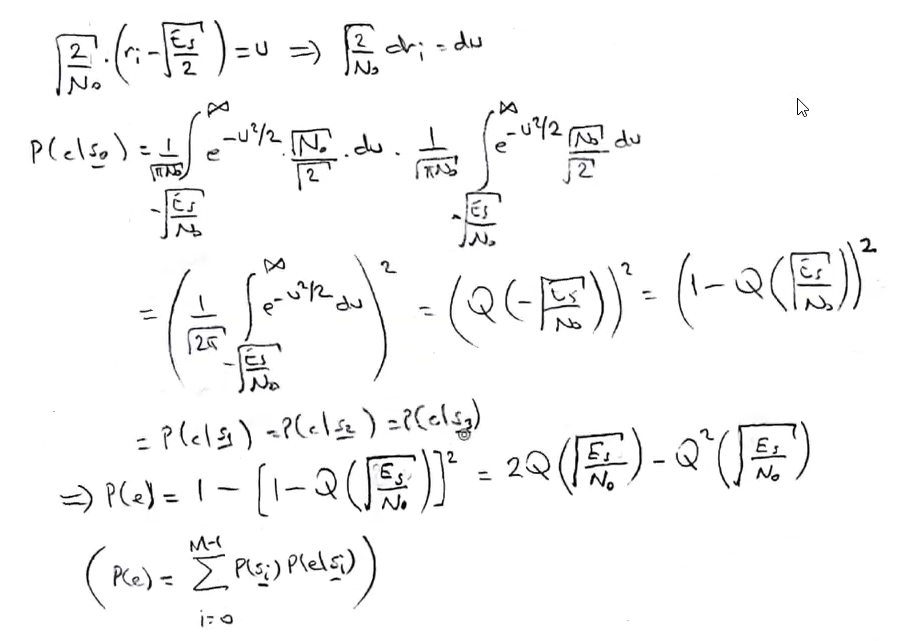 √(2/N₀) · (rᵢ - √(Es/2)) = u ⇒ √(2/N₀) drᵢ = du
P(c|s₀) = 1/√(πN₀) ∫_{-√(Es/N₀)}^{∞} e^{-u²/2} · √N₀/√2 · du · 1/√(πN₀) ∫_{-√(Es/N₀)}^{∞} e^{-u²/2} √N₀/√2 du
= (1/√(2π) ∫_{-√(Es/N₀)}^{∞} e^{-u²/2} du)² = (Q(-√(Es/N₀)))² = (1 - Q(√(Es/N₀)))²
= P(c|s₁) = P(c|s₂) = P(c|s₃)
⇒ P(e) = 1 - [1 - Q(√(Es/N₀))]² = 2Q(√(Es/N₀)) - Q²(√(Es/N₀))
(P(e) = Σ_{i=0}^{M-1} P(sᵢ) P(e|sᵢ))